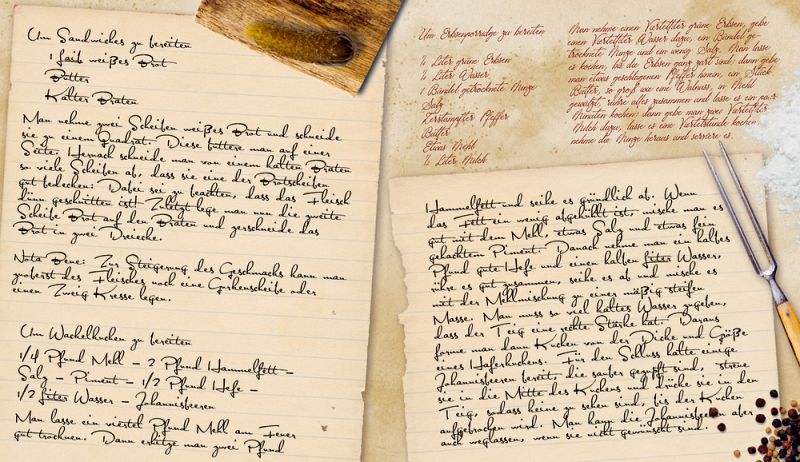 Um Sandwiches zu bereiten
1 faib weißes Brot
Butter
Kalter Braten
Man nehme zwei Scheiben weißes Brot und schneide
sie zu einem Quadrat. Diese buttere man auf einer
Seite. Hernach schneide man von einem kalten Braten
so viele Scheiben ab, dass sie eine der Brotscheiben
gut bedecken. Dabei sei zu beachten, dass das Fleisch
dünn geschnitten ist! Zuletzt lege man nun die zweite
Scheibe Brot auf den Braten und zerschneide das
Brot in zwei Dreiecke.
Nota Bene: Zur Steigerung des Geschmacks kann man
zuoberst des Fleisches noch eine Gurkenscheibe oder
einen Zweig Kresse legen.
Um Wachelkuchen zu bereiten
1/4 Pfund Mell – 2 Pfund Hammelfett –
Salz – Piment – 1/2 Pfund Hefe –
1/2 fiter Wasser – Johannisbeeren
Man lasse ein viertel Pfund Mell am Feuer
gut trocknen. Dann erhitze man zwei Pfund
Um Erbsenporridge zu bereiten
¼ Liter grüne Erbsen
¼ Liter Wasser
1 Bündel getrocknete Minze
Salz
Zerstampfter Pfeffer
Butter
Etwas Mehl
½ Liter Milch
Man nehme einen Viertelliter grüne Erbsen, gebe
einen Viertelliter Wasser dazu, ein Bündel ge-
trocknete Minze und ein wenig Salz. Man lasse
es kochen, bis die Erbsen ganz zart sind; dann gebe
man etwas geschlagenen Pfeffer hinein, ein Stück
Butter, so groß wie eine Walnuss, in Mehl
gewälzt, rühre alles zusammen und lasse es ein paar
Minuten kochen; dann gebe man zwei Viertelliter
Milch dazu, lasse es eine Viertelstunde kochen,
nehme die Minze heraus und serviere es.
Hammelfett und seihe es gründlich ab. Wenn
das Fett ein wenig abgekühlt ist, mische man es
gut mit dem Mell, etwas Salz und etwas fein
gehacktem Piment. Danach nehme man ein halbes
Pfund gute Hefe und einen halben fiter Wasser,
rühre es gut zusammen, seihe es ab und mische es
mit der Mehlmischung zu einer mäßig steifen
Masse. Man muss so viel kaltes Wasser zugeben,
dass der Teig eine rechte Stärke hat. Daraus
forme man dann Kuchen von der Dicke und Größe
eines Haferkuchens. Für den Schluss halte einige
Johannisbeeren bereit, die sauber gezupft sind, streue
sie in die Mitte des Kuchens und drücke sie in den
Teig, sodass keine zu sehen sind, bis der Kuchen
aufgebrochen wird. Man kann die Johannisbeeren aber
auch weglassen, wenn sie nicht gewünscht sind.